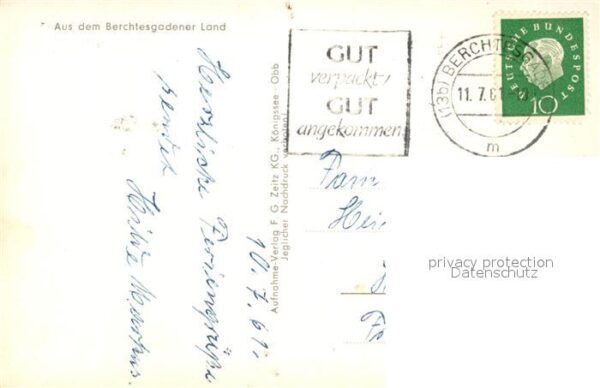 Aus dem Berchtesgadener Land
Herzliche Feriengrüße
sendet
10.7.61.
Aufnahme-Verlag F. G. Zeitz KG., Königssee - Obb
Jeglicher Nachdruck verboten!
GUT
verpackt,
GUT
angekommen
(13b) BERCHTESG
11. 7. 61
m
DEUTSCHE BUNDESPOST
10
Fam
Hei
privacy protection
Datenschutz